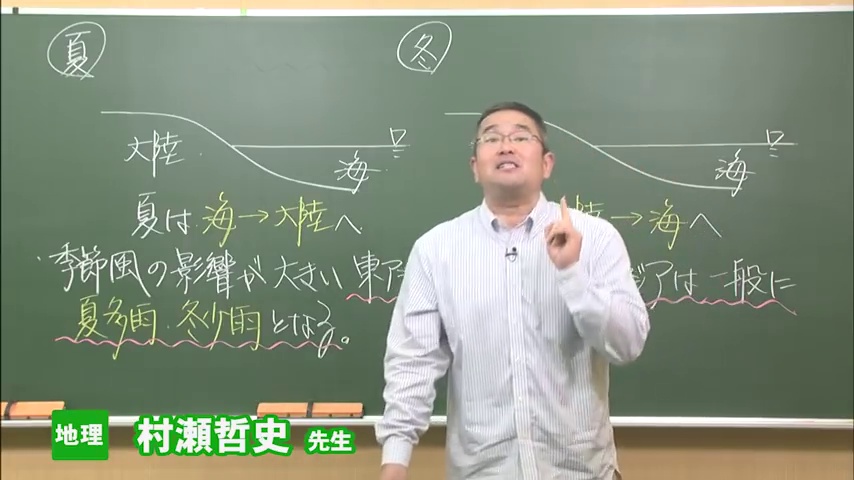 夏
冬
大陸
海
海
夏は海→大陸へ
陸→海へ
季節風の影響が大きい東ア
ジアは一般に
夏多雨・冬少雨となる。
地理 村瀬哲史 先生